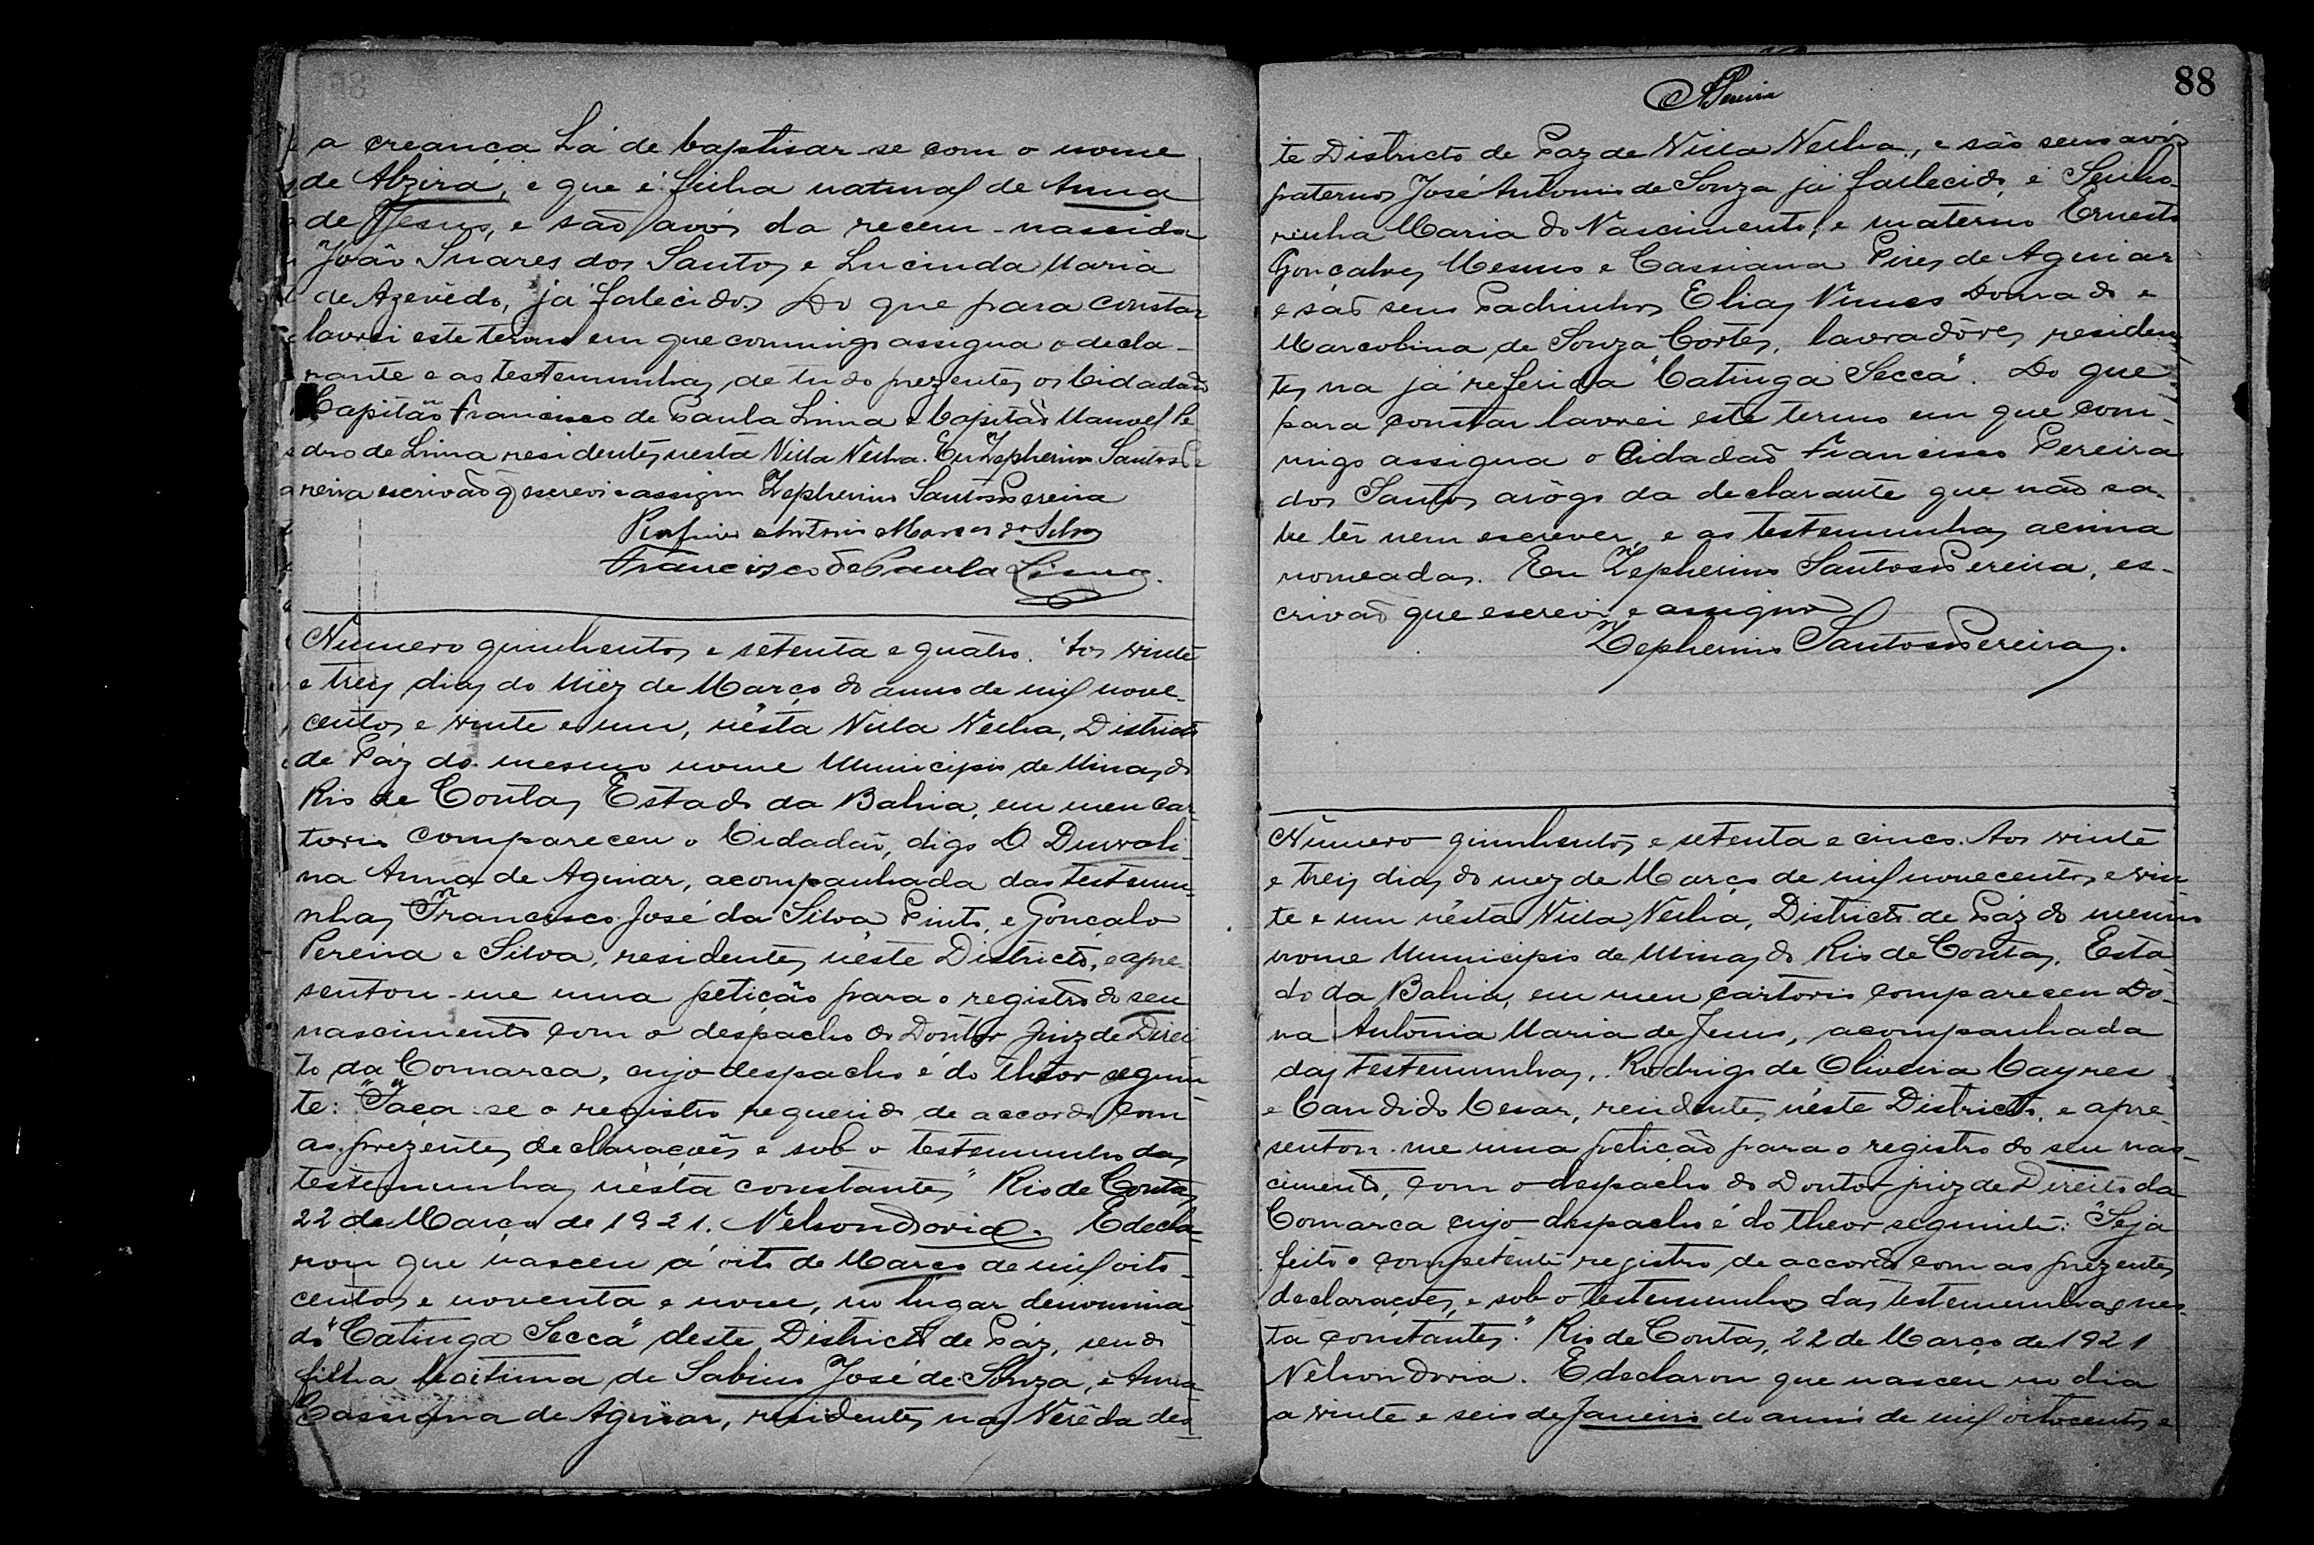 a creança há de baptisar-se com o nome
de Alzira, e que é filha natural de Anna
de Jesus, e são avós da recem-nascida
João Suares dos Santos e Lucinda Maria
de Azevêdo, já falecidos Do que para constar
lavrei este termo em que commingo assigna o decla-
rante e as testemunhas, de tudo prezentes os Cidadãos
Capitão Francisco de Paula Lima e Capitão Manoel Pe
dro de Lima residentes nesta Villa Velha. Eu Zepherino Santos Pe
reira escrivão q escrevi e assigno Zepherino Santos Pereira
Rufino Antonio da Silva
Francisco de Paula Lima.
Número quinhentos e setenta e quatro. Aos vinte
e treis dias do mêz de Março do anno de mil nove-
centos e vinte e um, nésta Villa Velha, Districto
de Páz do mesmo nome Municipio de Minas do
Rio de Contas Estado da Bahia, em meu car-
torio compareceu o Cidadão, digo D. Durvali-
na Anna de Aguiar, acompanhada das testemu-
nhas Francisco José da Silva Pinto, e Gonçalo
Pereira e Silva, residentes néste Districto, e apre-
sentou-me uma petição para o registro do seu
nascimento com o despacho do Doutor Juiz de Direi-
to da Comarca, cujo despacho é do theor seguin-
te: "Faça-se o registro requerido de accordo com
as prezentes declarações e sob o testemunho das
testemunhas nésta constantes" Rio de Contas,
22 de Março de 1921. Nelson Doria. E decla-
rou que nasceu á oito de Março de mil oito-
centos e noventa e nove, no lugar denomina-
do "Catinga Secca" deste Districto de Páz, sendo
filha legitima de Sabino José de Souza, e Anna
Cassiana de Aguiar, residentes na Verêda des
88
te Districto de Paz de Villa Velha, e são seus avós
paternos José Antonio de Souza já fallecido, e Senho-
rinha Maria do Nascimento, e materno Ernesto
Gonçalves Mesmo e Cassiana Pires de Aguiar
e são seus Padrinhos Elias Nunes Dourado e
Marcolina de Souza Cortes, lavradôres, residen-
tes na já referida "Catinga Secca". Do que
para constar lavrei este termo em que com-
migo assigna o Cidadão Francisco Pereira
dos Santos arôgo da declarante que não sa-
be lêr nem escrever, e as testemunhas acima
nomeadas. Eu Zepherino Santos Pereira, es-
crivão que escrevi e assigno
Zepherino Santos Pereira.
Número quinhentos e setenta e cinco. Aos vinte
e treis dias do mez de Março de mil novecentos e vin-
te e um nésta Villa Velha, Districto de Páz do mesmo
nome Municipio de Minas do Rio de Contas, Esta-
do da Bahia, em meu cartorio compareceu Do-
na Antônia Maria de Jesus, acompanhada
das testemunhas, Rodrigo de Oliveira Cayres
e Candido Cesar, residentes néste Districto, e apre-
sentou-me uma petição para o registro do seu nas-
cimento, com o despacho do Doutor juiz de Direito da
Comarca cujo despacho é do theor seguinte: "Seja
feito o competente registro de accordo com as prezentes
declarações, e sob o testemunho das testemunhas nes-
ta constantes." Rio de Contas, 22 de Março de 1921
Nelson Doria. E declarou que nasceu no dia
a vinte e seis de Janeiro do anno de mil oitocentos e